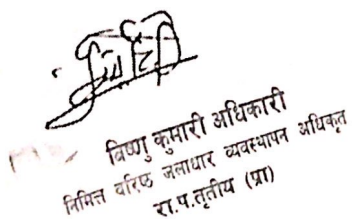 विष्णु कुमारी अधिकारी
निमित्त वरिष्ठ जलाधार व्यवस्थापन अधिकृत
रा.प.तृतीय (प्रा)